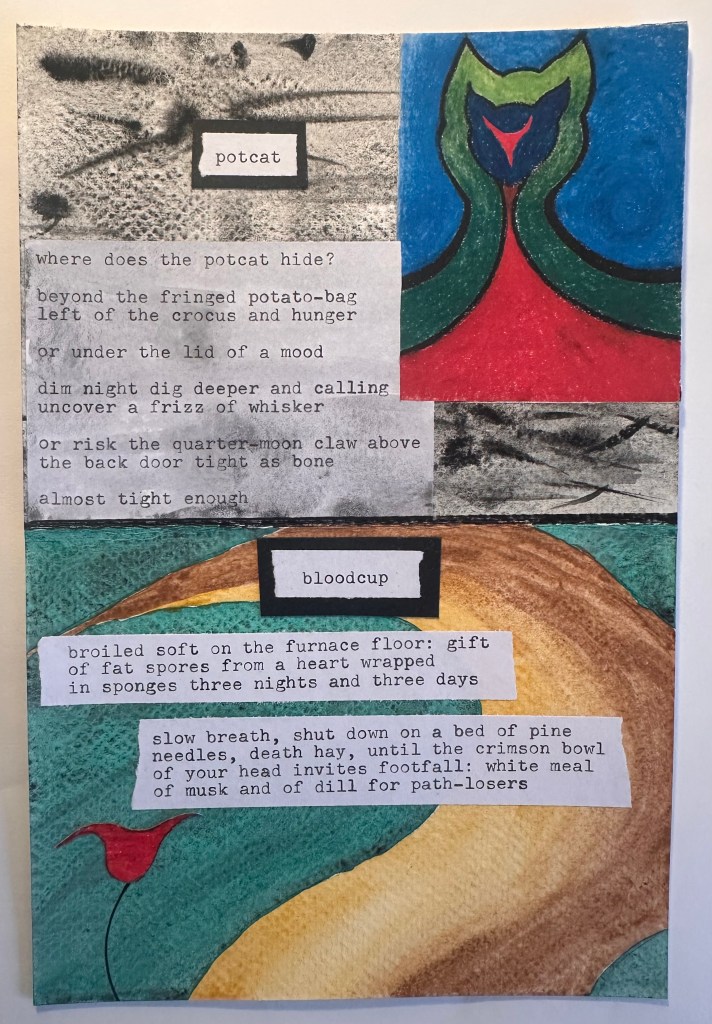 potcat
where does the potcat hide?
beyond the fringed potato-bag
left of the crocus and hunger
or under the lid of a mood
dim night dig deeper and calling
uncover a frizz of whisker
or risk the quarter-moon claw above
the back door tight as bone
almost tight enough
bloodcup
broiled soft on the furnace floor: gift
of fat spores from a heart wrapped
in sponges three nights and three days
slow breath, shut down on a bed of pine
needles, death hay, until the crimson bowl
of your head invites footfall: white meal
of musk and of dill for path-losers